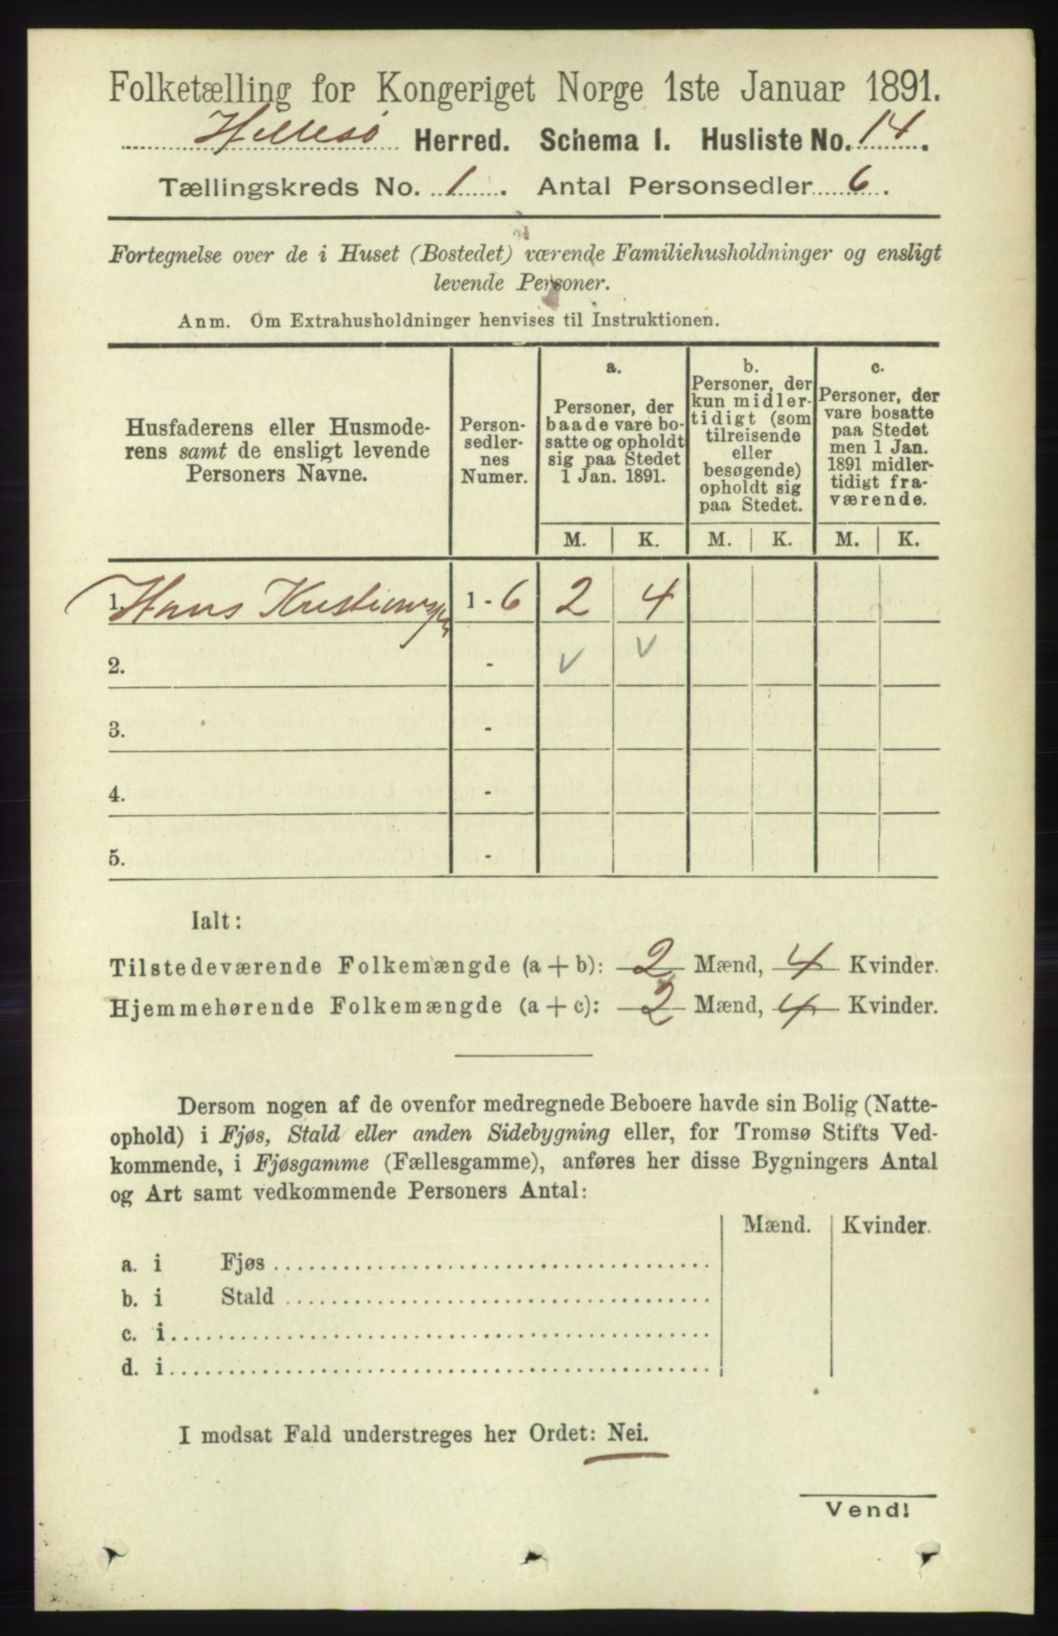 Folketælling for Kongeriget Norge 1ste Januar 1891.
Hillesø Herred. Schema I. Husliste No. 14.
Tællingskreds No. 1. Antal Personsedler 6.
Fortegnelse over de i Huset (Bostedet) værende Familiehusholdninger og ensligt
levende Personer.
Anm. Om Extrahusholdninger henvises til Instruktionen.
Husfaderens eller Husmode-
rens samt de ensligt levende
Personers Navne.
Person-
sedler-
nes
Numer.
a.
Personer, der
baade vare bo-
satte og opholdt
sig paa Stedet
1 Jan. 1891.
b.
Personer, der
kun midler-
tidigt (som
tilreisende
eller
besøgende)
opholdt sig
paa Stedet.
c.
Personer, der
vare bosatte
paa Stedet
men 1 Jan.
1891 midler-
tidigt fra-
værende.
M. K. M. K. M. K.
1. Hans 1 - 6 2 4
2. - v v
3. -
4. -
5. -
Ialt:
Tilstedeværende Folkemængde (a + b): 2 Mænd, 4 Kvinder.
Hjemmehørende Folkemængde (a + c): 2 Mænd, 4 Kvinder.
Dersom nogen af de ovenfor medregnede Beboere havde sin Bolig (Natte-
ophold) i Fjøs, Stald eller anden Sidebygning eller, for Tromsø Stifts Ved-
kommende, i Fjøsgamme (Fællesgamme), anføres her disse Bygningers Antal
og Art samt vedkommende Personers Antal:
Mænd. Kvinder.
a. i Fjøs
b. i Stald
c. i
d. i
I modsat Fald understreges her Ordet: Nei.
Vend!